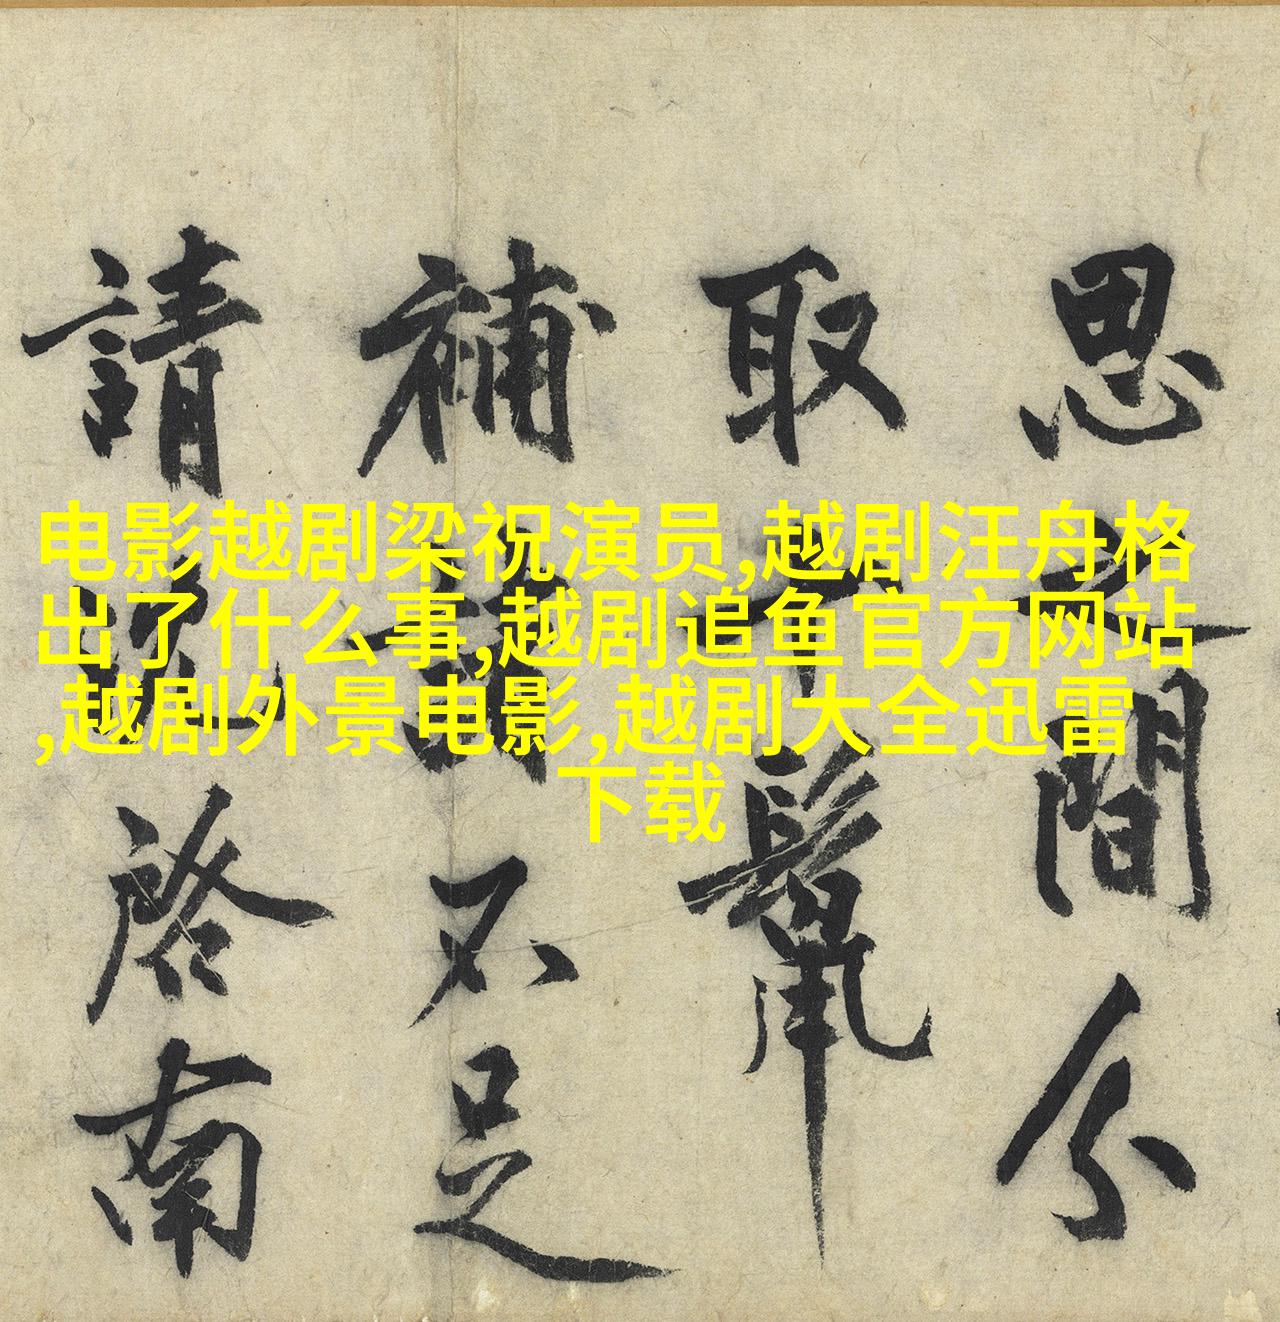 电影越剧梁祝演员,越剧汪舟格
出了什么事,越剧追鱼官方网站
,越剧外景电影,越剧大全迅雷
下载
思間分
取
補不足
請啓南